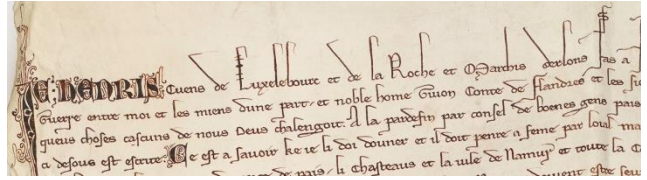 Je henris Cuens de Luxelebourc et de la Roche et Marchis derlons fas a
Guerre entre moi et les miens dune part et noble home Guion Conte de flandres et les
queus choses cascuns de nous Deus chalengoit. A la pardefin par consel de boenes gens pais
a desous est escrite. Ce est a savoir ke ie li doi douner et il doit penre a feme par loial
de pais, li chasteaus et la vile de Namur et toute la
doivent estre